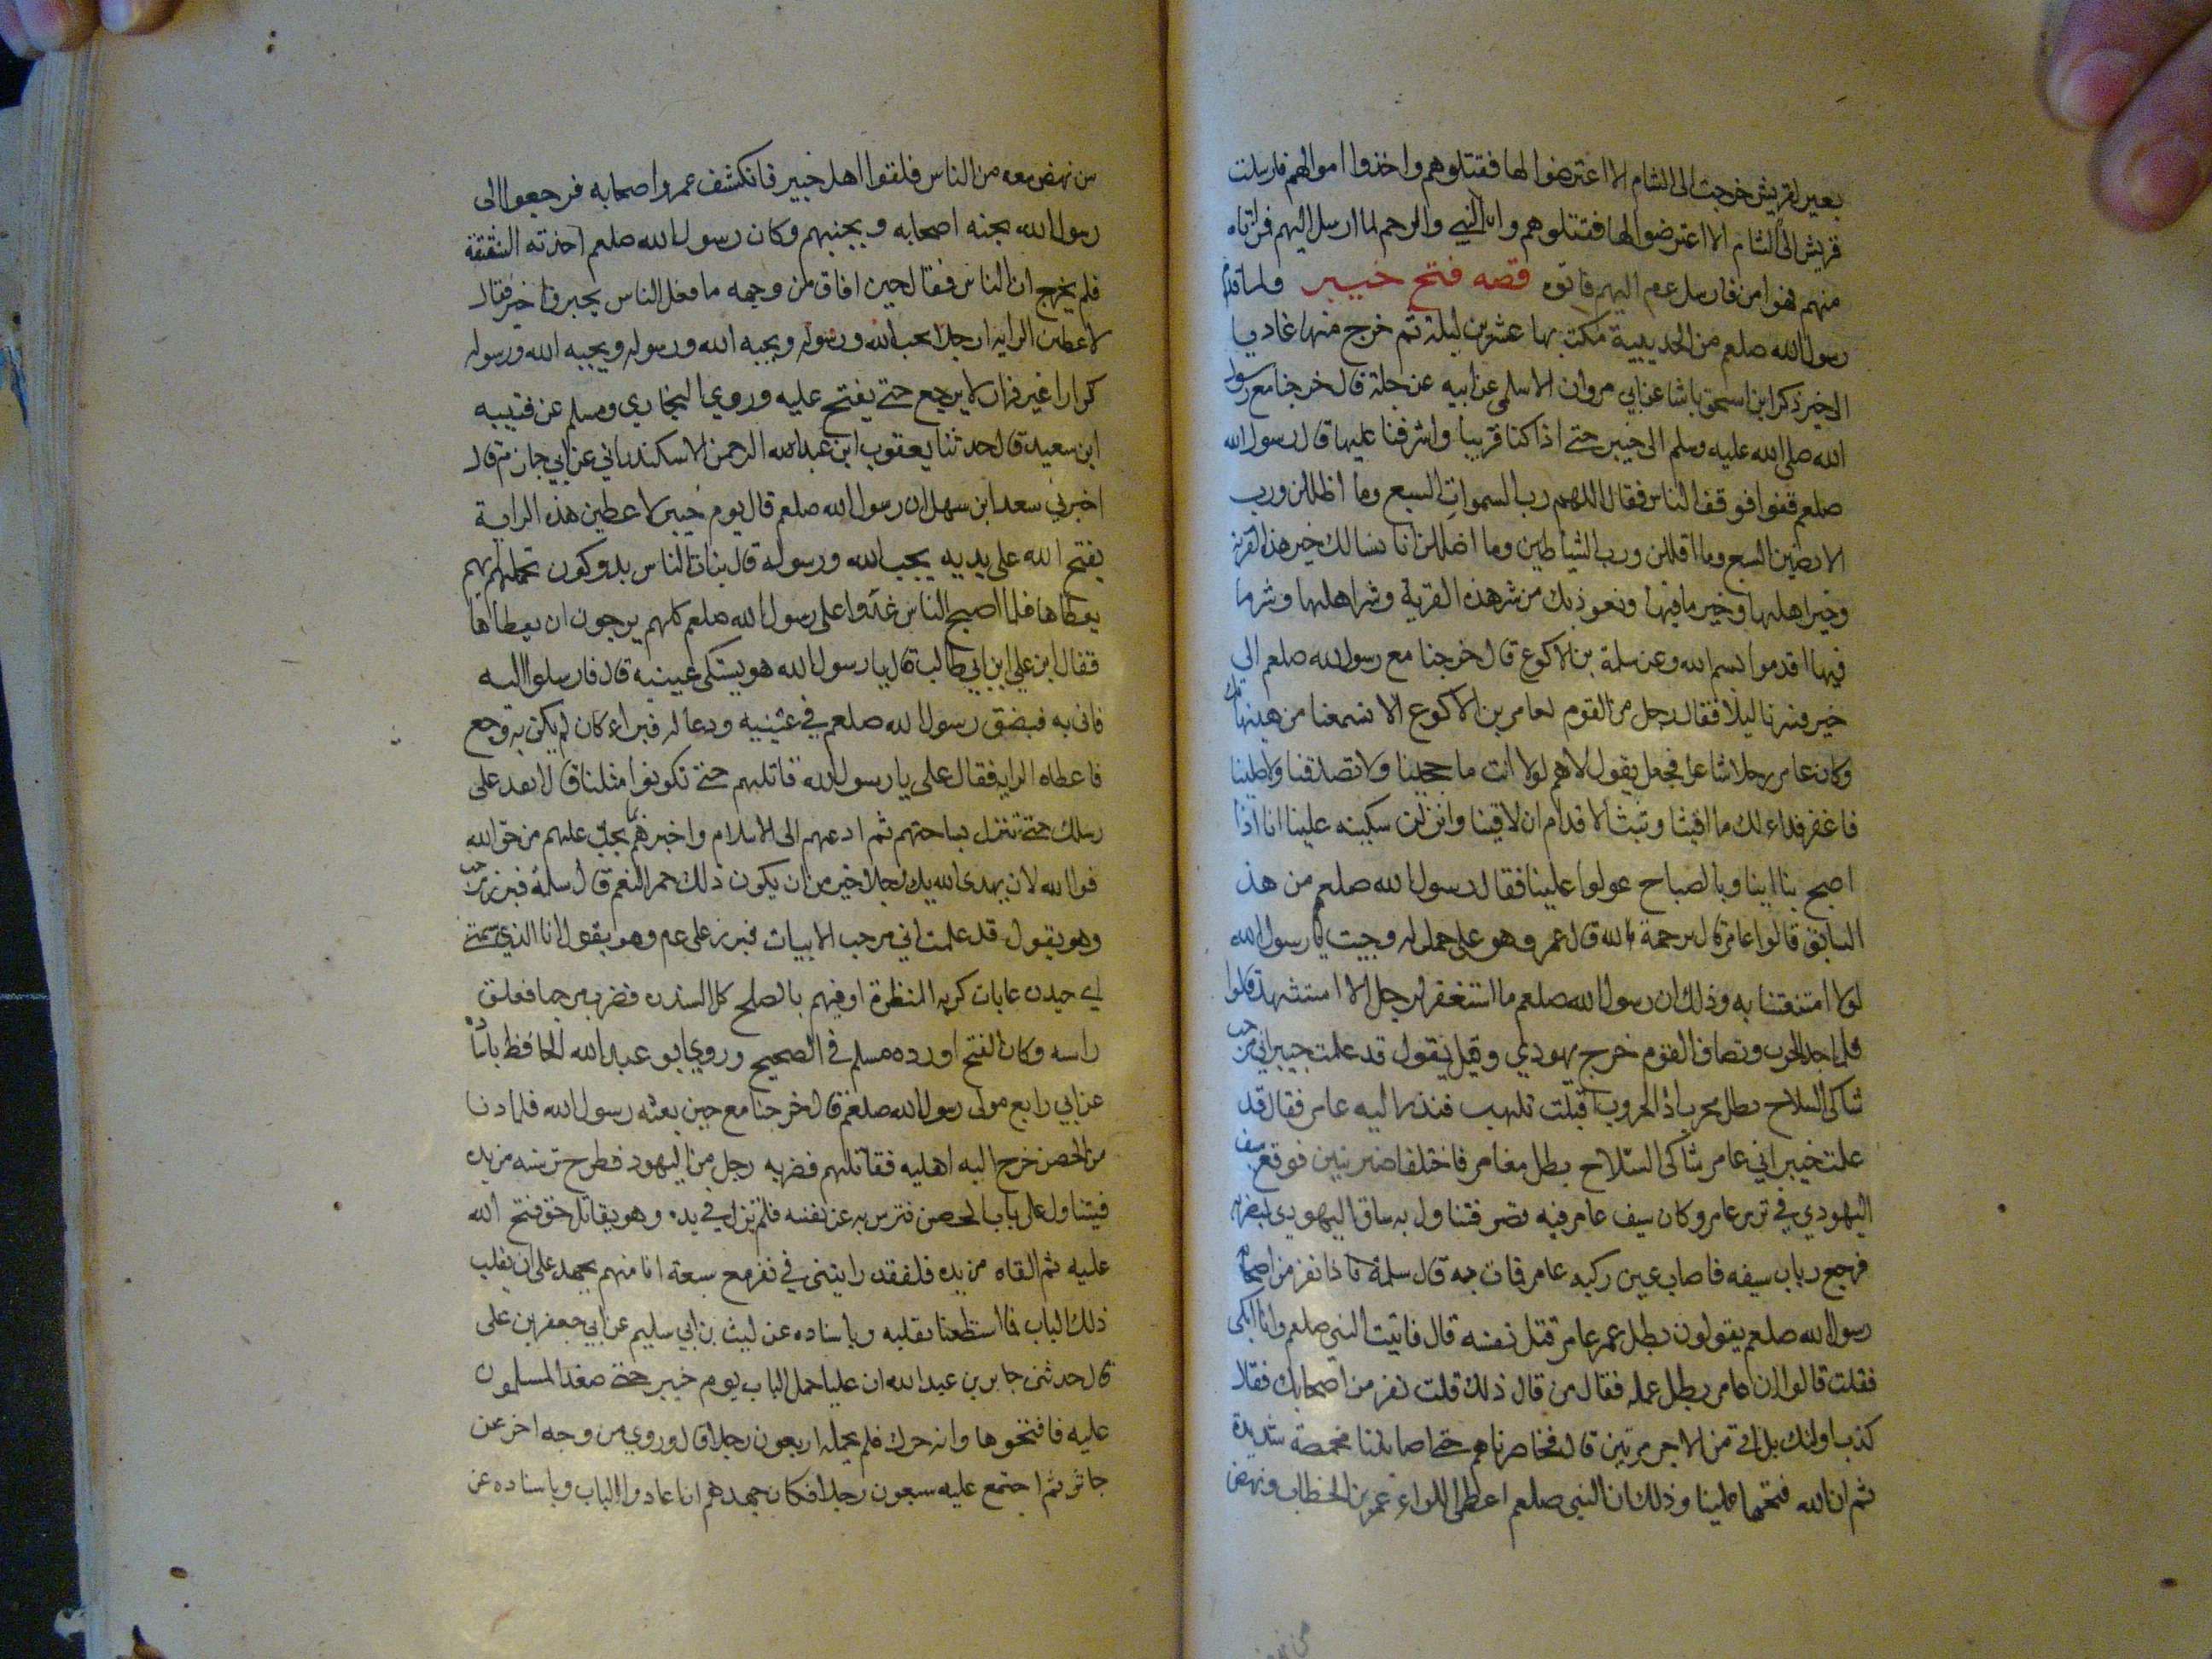 بعير لقريش خرجت الى الشام الا اعترضوا لها فقتلوهم واخذوا اموالهم فارسلت
قريش الى الشام الا اعترضوا لها فقتلوهم والرحم لما ارسل اليهم فمن اتاه
منهم فهو امن فارسل عم اليهم فاتوه قصه فتح خيبر ولما قدم
رسول الله صلعم من الحديبية مكث بها عشرين ليلة ثم خرج منها غاديا
الاخير ذكر ابن اسحق باشا عن ابي مروان الاسلمى عن ابيه عن جلة قال خرجنا مع رسول
الله صلى الله عليه وسلم الى خيبر حتى اذا كنا قريبا واشرفنا عليها قال رسول الله
صلعم قفوا فوقف الناس فقال اللهم رب السموات السبع وما اظللن ورب
الارضين السبع وما اقللن ورب الشياطين وما اضللن انا نسالك خير هذه القرية
وخير اهلها وخير ما فيها ونعوذ بك من شر هذه القرية وشر اهلها وشر ما
فيها اقدموا بسم الله وعن سلمة بن الاكوع قال خرجنا مع رسول الله صلعم الى
خيبر فسرنا ليلا فقال رجل من القوم لعامر بن الاكوع الا تسمعنا من هنيهاتك
وكان عامر رجلا شاعرا فجعل يقول لاهم لولا انت ما حجينا ولا تصدقنا ولا صلينا
فاغفر فداء لك ما اقيثا وثبت الاقدام ان لاقينا وانزلن سكينه علينا انا اذا
اصبح بنا اينا وبالصباح عولوا علينا فقال رسول الله صلعم من هذ
السابق قالوا عامر قال يرحمة الله قال عمر وهو على جمل له وجبت يا رسول الله
لولا امتعتنا به وذلك ان رسول الله صلعم ما استغفر لرجل الا استشهد قالوا
فلما جد الحرب وتصاف القوم خرج يهودي وقيل يقول قد علمت خيبر اني مرحب
شاكى السلاح بطل مجرب اذ الحروب اقبلت تلهب فندر اليه عامر فقال قد
علمت خيبر اني عامر شاكى السلاح بطل مغامر فاختلفا ضربتين فوقع سيف
اليهودي في ترس عامر وكان سيف عامر فيه قصر فتناول به ساق اليهودي ليضربه
فرجع رباب سيفه فاصاب عين ركبه عامر فمات به قال سلمة فاذا نفر من اصحاب
رسول الله صلعم يقولون بطل عمر عامر قتل نفسه قال فاتيت النبي صلعم وانا ابكى
فقلت قالوا ان عامر بطل عمله فقال من قال ذلك قلت نفر من اصحابك فقال
كذب اولئك بل له من الاجر مرتين قال فحاصرناهم حتى اصابتنا مخمصة شديدة
ثم ان الله فتحها علينا وذلك ان النبي صلعم اعطى اللواء عمر بن الخطاب ونهض
من نهض معه من الناس فلقوا اهل خيبر فانكشف عمر واصحابه فرجعوا الى
رسول الله يجنه اصحابه ويجنبهم وكان رسول الله صلعم اخذته الشقيقة
فلم يخرج الى الناس فقال حين افاق من وجعه ما فعل الناس بخيبر فاخبر فقال
لاعطين الراية رجلا يحب الله ورسوله ويحبه الله ورسوله ويحبه الله ورسوله
كرارا غير فرار لا يرجع حتى يفتح عليه وروي البخاري ومسلم عن قتيبه
ابن سعيد قال حدثنا يعقوب ابن عبد الله الرحمن الاسكندراني عن ابي حازم قال
اخبرني سعد ابن سهل ان رسول الله صلعم قال يوم خيبر لاعطين هذه الراية
يفتح الله على يديه يحب الله ورسوله قال بنات الناس يدوكون بجملتهم ايهم
يعطاها فلما اصبح الناس غدوا على رسول الله صلعم كلهم يرجون ان يعطاها
فقال ابن علي ابن ابي طالب قال يا رسول الله هو يشتكى عينيه قال فارسلوا اليه
فاتى به فبصق رسول الله صلعم في عينيه ودعا له فبراء كان لم يكن به وجع
فاعطاه الراية فقال على يا رسول الله قاتلهم حتى تكونوا مثلنا قال انفد على
رسلك حتى تنزل بساحتهم ثم ادعهم الى الاسلام واخبرهم بما يجب عليهم من حق الله
فوالله لان يهدى الله بك رجلا خير من ان يكون ذلك حمر النعم قال سلمة فبرز مرحب
وهو يقول قد علمت اني مرحب الابيات فبرز على عم وهو يقول انا الذي سمتنى
امي حيدره غابات كريه المنظرة اوفيهم بالصاع كيل السندره فضرب مرحبا ففلق
راسه وكان الفتح اورده مسلم في الصحيح وروي ابو عبد الله الحافظ باسناده
عن ابي رابع مولى رسول الله صلعم قال خرجنا مع حين بعثه رسول الله فلما دنا
من الحصن خرج اليه اهليه فقاتلهم فضربه رجل من اليهود فطرح ترسه من يده
فيتناول على باب الحصن فترس به عن نفسه فلم يزل في يده وهو يقاتل حتى فتح الله
عليه ثم القاه من يده فلقد رايتني في نفر مع سبعة انا منهم نجهد على ان نقلب
ذلك الباب فما استطعنا نقلبه وباسناده عن ليث بن ابي سليم عن ابي جعفر بن على
قال حدثنى جابر بن عبد الله ان عليا حمل الباب يوم خيبر حتى صعد المسلمون
عليه فافتتحوها وانه حرك فلم يحمله اربعون رجلا قال وروي من وجه اخر عن
جابر ثم اجتمع عليه سبعون رجلا فكان جهدهم ان اعادوا الباب وباسناده عن